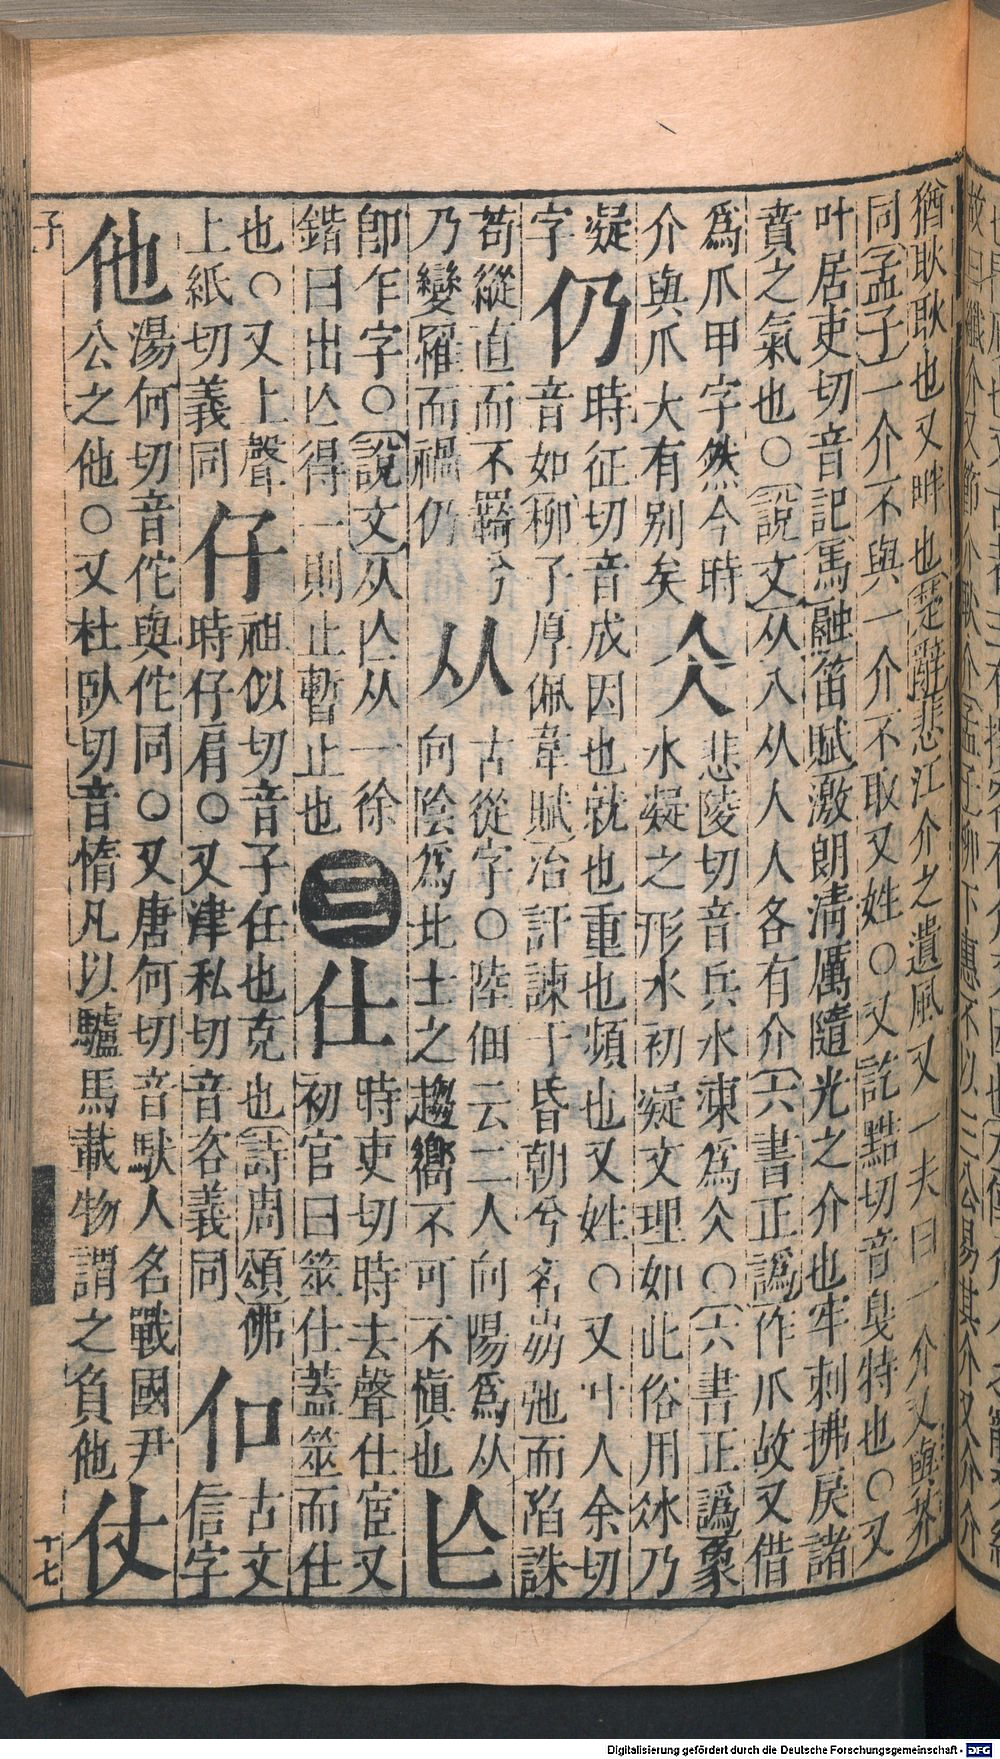 猶耿耿也又畔也楚辭悲江介之遺風又一夫曰一介又與芥
同孟子一介不與一介不取又姓○又訖黠切音戛特也○又
叶居吏切音記馬融笛賦激朗淸厲隨光之介也牢刺拂戾諸
賁之氣也○說文从八从人人各有介六書正譌作爪故又借
爲爪甲字然今時
介與爪大有别矣
仌
悲陵切音兵水凍爲仌○六書正譌象
水凝之形水初凝文理如此俗用冰乃
凝
字
仍
時征切音成因也就也重也頻也又姓○又叶人余切
音如柳子厚佩韋賦冶訐諫于昏朝兮名崩弛而陷誅
苟縱直而不羈兮
乃變罹而禍仍
从
古從字○陸佃云二人向陽爲从
向陰爲北士之趨嚮不可不愼也
卽乍字○說文从亾从一徐
鍇曰出亾得一則止暫止也
三
仕
時吏切時去聲仕宦又
初官曰筮仕蓋筮而仕
也○又上聲
上紙切義同
仔
祖似切音子任也克也詩周頌佛
時仔肩○又津私切音咨義同
㐰
古文
信字
他
湯何切音佗與佗同○又唐何切音馱人名戰國尹
公之他○又杜臥切音惰凡以驢馬載物謂之負他
仗
子
十七
Digitalisierung gefördert durch die Deutsche Forschungsgemeinschaft - DFG